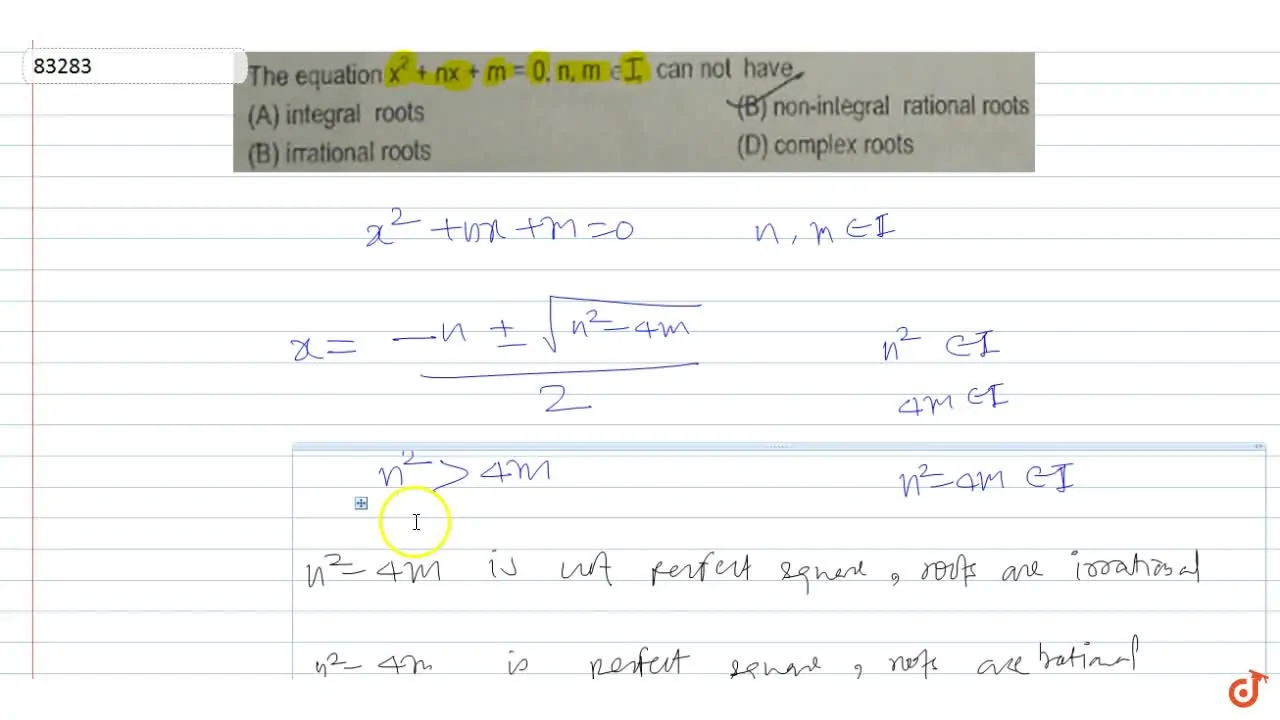 83283
The equation x² + nx + m = 0, n, m ∈ I, can not have
(A) integral roots (B) non-integral rational roots
(B) irrational roots (D) complex roots
x² + nx + m = 0 n, m ∈ I
x = (-n ± √(n² - 4m)) / 2
n² ∈ I
4m ∈ I
n² > 4m n² - 4m ∈ I
n² - 4m is not perfect square, roots are irrational
n² - 4m is perfect square, roots are rational